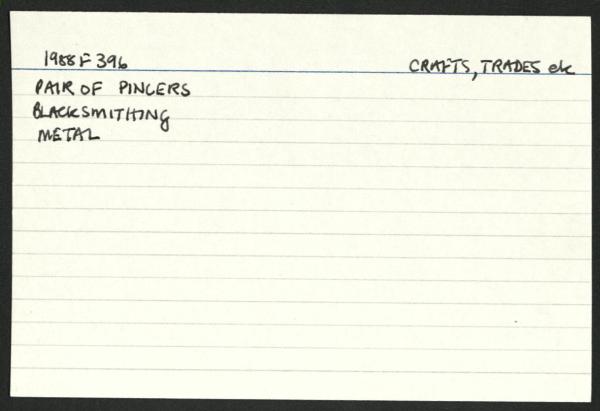 1988 F 396
CRAFTS, TRADES etc
PAIR OF PINCERS
BLACKSMITHING
METAL